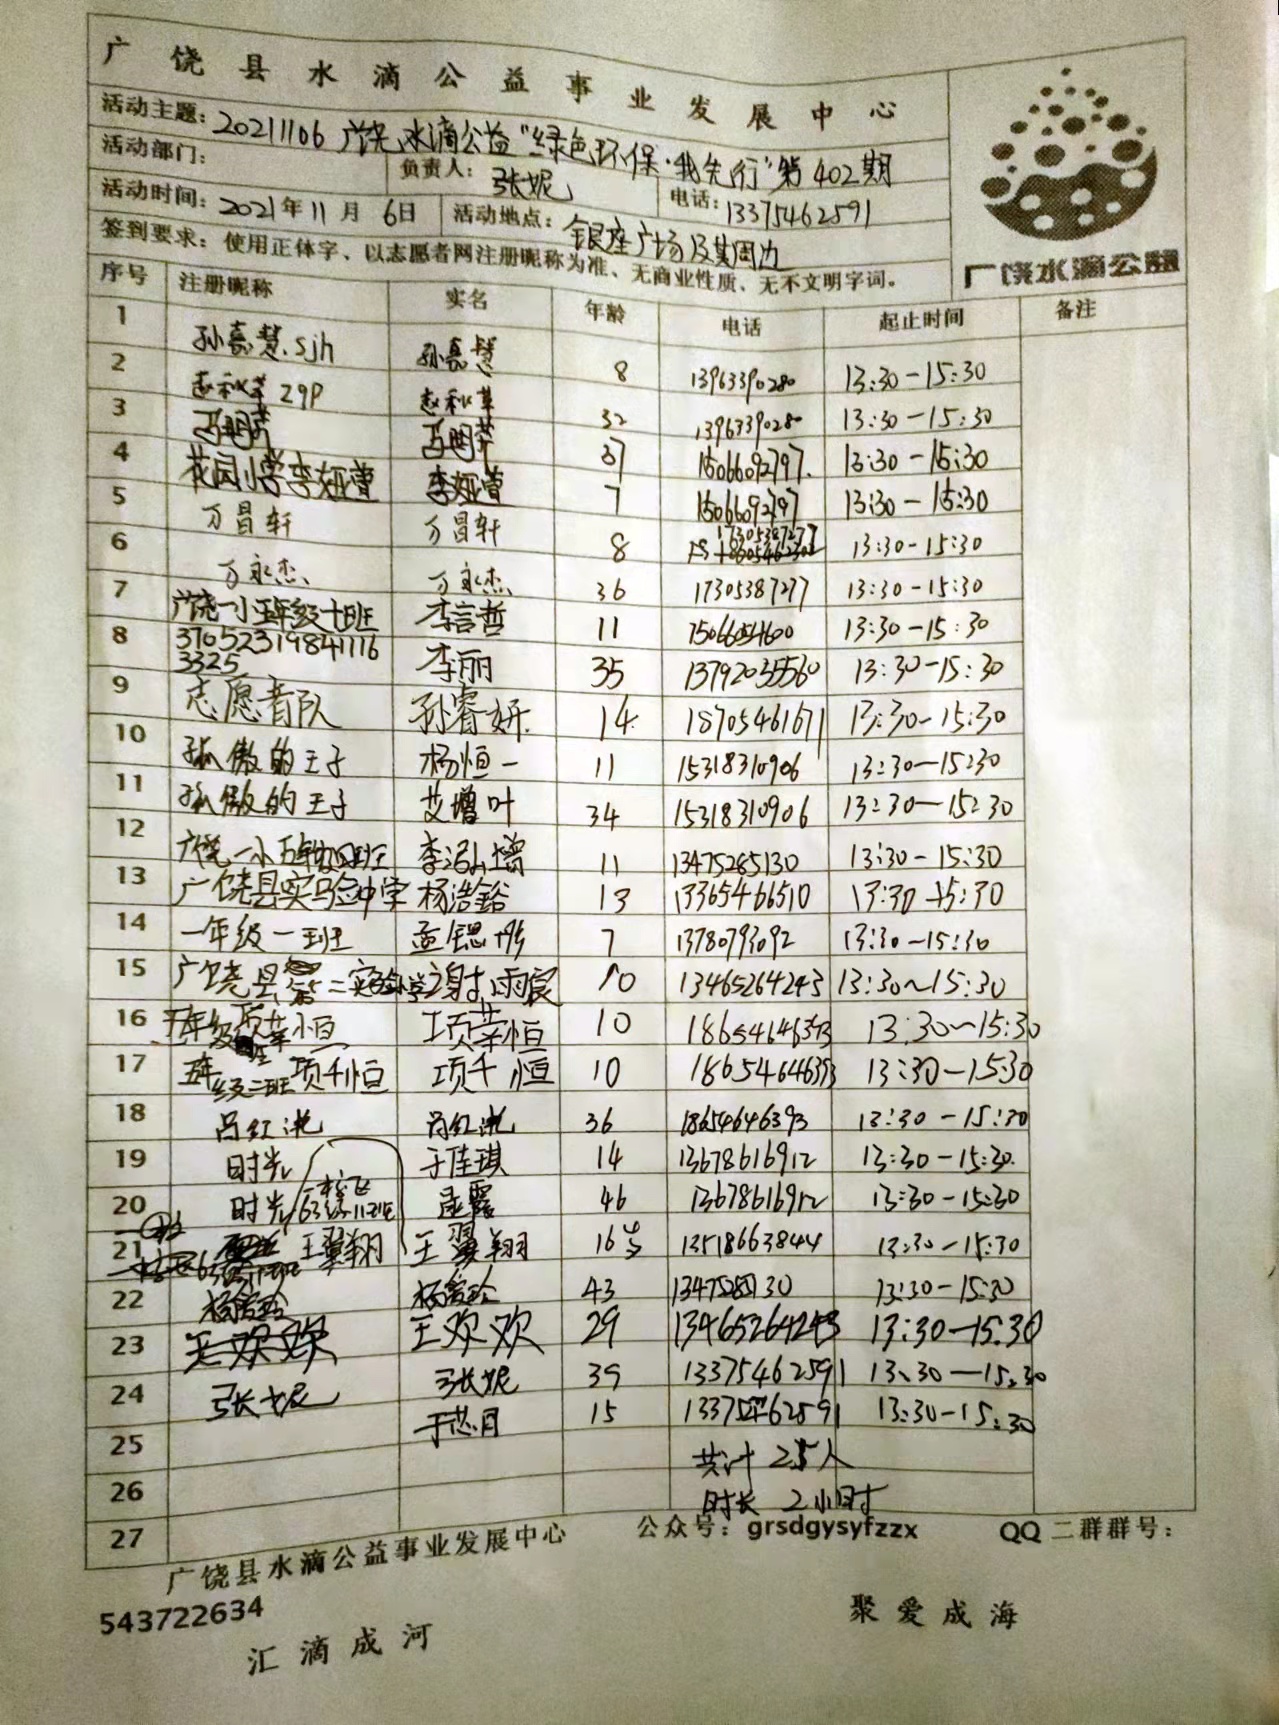 广饶县水滴公益事业发展中心
活动主题：20211106广饶水滴公益"绿色环保·我先行"第402期
活动部门： 负责人：张妮 电话：13375462591
活动时间：2021年11月6日 活动地点：银座广场及其周边
签到要求：使用正体字、以志愿者网注册昵称为准、无商业性质、无不文明字词。
广饶水滴公益
序号 注册昵称 实名 年龄 电话 起止时间 备注
1 孙嘉慧.sjh 孙嘉慧 8 13963390280 13:30-15:30
2 赵秋苹zqp 赵秋苹 32 13963390280 13:30-15:30
3 37 15066092797. 13:30-15:30
4 花园小学李娅萱 李娅萱 7 15066092797 13:30-15:30
5 万昌轩 万昌轩 8 17305387277 13:30-15:30
6 万永杰 万永杰 36 17305387277 13:30-15:30
7 广饶一小五年级十班 李言哲 11 15066054600 13:30-15:30
8 370523198411163325 李丽 35 13792035560 13:30-15:30
9 志愿者队 孙睿妍 14 18705461671 13:30-15:30
10 孤傲的王子 杨恒一 11 15318310906 13:30-15:30
11 孤傲的王子 艾增叶 34 15318310906 13:30-15:30
12 广饶一小五年级四班 李泓增 11 13475285130 13:30-15:30
13 广饶县实验中学 杨浩鋊 13 13365466510 13:30-15:30
14 一年级一班 孟 7 13780793092 13:30-15:30
15 广饶县第二实验小学 谢雨宸 10 13465264243 13:30~15:30
16 五年级 项莘恒 项莘恒 10 18654646393 13:30-15:30
17 五年级二班项千恒 项千恒 10 18654646393 13:30-15:30
18 吕红 吕红 36 18654646393 13:30-15:30
19 时光 于佳琪 14 13678616912 13:30-15:30
20 时光 46 13678616912 13:30-15:30
21 王翼翔 王翼翔 16岁 13518663844 13:30-15:30
22 杨 杨 43 13:30-15:30
23 王欢欢 王欢欢 29 13465264243 13:30-15:30
24 张妮 张妮 39 13375462591 13:30-15:30
25 于芯月 15 13375462591 13:30-15:30
26 共计25人
27 时长2小时
广饶县水滴公益事业发展中心 公众号：grsdgysyfzzx QQ二群群号：
543722634
汇滴成河 聚爱成海